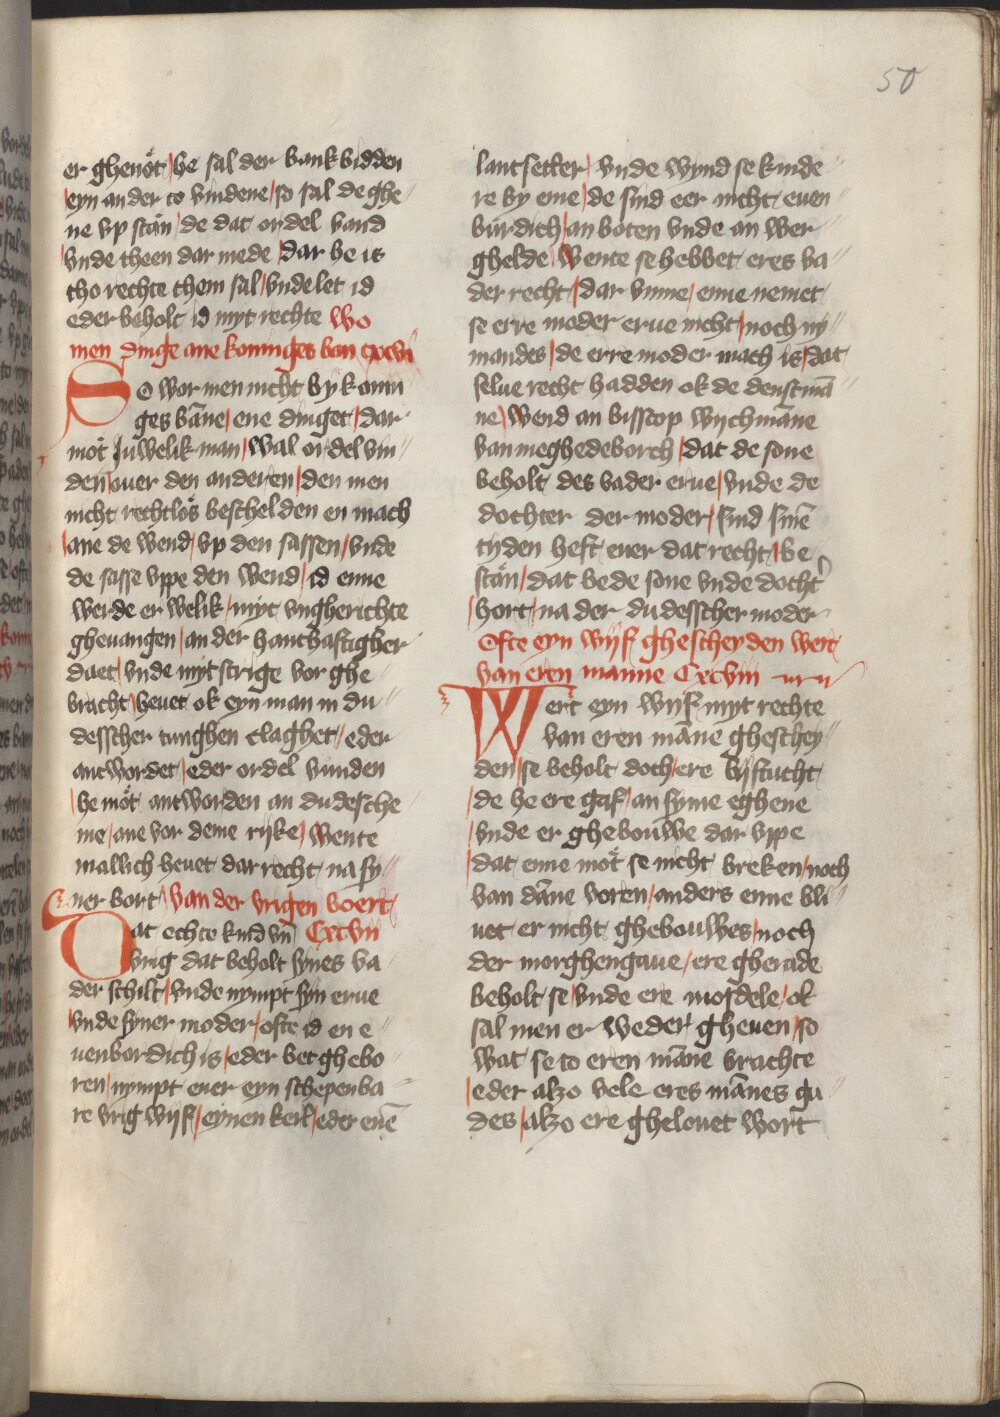 50
er ghenot / he sal der bank bidden
eyn ander to vindene / so sal de ghe
ne vp stan / de dat ordel vand
vnde theen dar mede / dar he is
tho rechte them sal / vnde let id
eder beholt id myt rechte Wo
men dinge ane koninges ban cxcvi
So wor men nicht by konin
ges bāne / ene dinget / dar
mot Juwelik man / wal ordel vin
den / ouer den anderen / den men
nicht rechtlos beschelden en mach
ane de wend / vp den sassen / vnde
de sasse vppe den wend / id enne
werde er welik / myt vngherichte
gheuangen / an der hanthaftigher
daet / vnde myt scrige vor ghe
bracht / heuet ok eyn man in du
desscher tunghen claghet / eder
antwordet / eder ordel vunden
he mot antworden an dudesche
me / ane vor deme rijke / wente
mallich heuet dar recht / na sy
ner bort / van der vrigen boert
Dat echte kind vn̄ Cxcvii
vrig dat beholt synes va
der schilt / vnde nympt syn erue
vnde syner moder / ofte id en e
uenbordich is / eder bet ghebo
ren / nympt euer eyn schepenba
re vrig wijf / eynen kerl / eder enē
lantsetter / vnde wynd se kinde
re by eme / de sind eer nicht euen
burdich / an boten vnde an wer
ghelde / wente se hebbet eres va
der recht / dar vmme / enne nemet
se erre moder erue nicht / noch ny
mandes / de erre moder mach is / dat
selue recht hadden ok de denstmā
ne / wend an bisscop wychmāne
van meghedeborch / dat de sone
beholt des vader erue / vnde de
dochter der moder / sind sinē
tyden heft euer dat recht / be
stan / dat bede sone vnde docht
hort / na der dudesscher moder
Ofte eyn wijf ghescheyden wert
van eren manne Cxcviii
Wert eyn wijf myt rechte
van eren māne gheschey
den / se beholt doch / ere lijftucht
de he ere gaf / an syme eghene
vnde er ghebouwe dar vppe
dat enne mot se nicht breken / noch
van dāne voren / anders enne bli
uet er nicht ghebouwes / noch
der morghengaue / ere gherade
beholt se / vnde ere mosdele / ok
sal men er weder gheuen / so
wat se to eren māne brachte
eder alzo vele eres mānes gu
des / alzo ere ghelouet wort